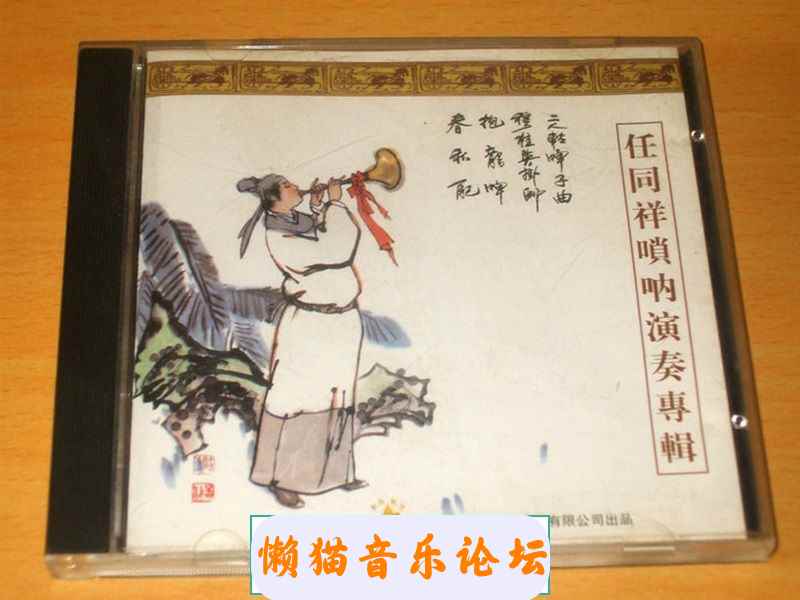 任同祥嗩吶演奏專輯
啍子曲
桂英掛帥
龍啍
春秋配
有限公司出品
懒猫音乐论坛